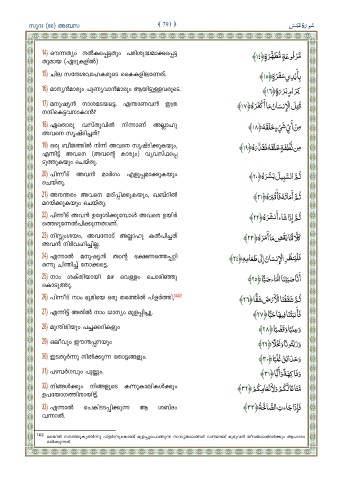 സൂറ (80) അബസ
﴾ 791 ﴿
سورة عبس
14) ഔന്നത്യം നൽകപ്പെട്ടതും പരിശുദ്ധമാക്കപ്പെട്ട
തുമായ (ഏടുകളിൽ)
مَّرْفُوعَةٍ مُّطَهَّرَةٍ ﴿١٤﴾
15) ചില സന്ദേശവാഹകരുടെ കൈകളിലാണത്.
بِأَيْدِي سَفَرَةٍ ﴿١٥﴾
16) മാന്യൻമാരും പുണ്യവാൻമാരും ആയിട്ടുള്ളവരുടെ.
كِرَامٍ بَرَرَةٍ ﴿١٦﴾
17) മനുഷ്യൻ നാശമടയട്ടെ. എന്താണവൻ ഇത്ര
നന്ദികെട്ടവനാകാൻ?
قُتِلَ الْإِنسَانُ مَا أَكْفَرَهُ ﴿١٧﴾
18) ഏതൊരു വസ്തുവിൽ നിന്നാണ് അല്ലാഹു
അവനെ സൃഷ്ടിച്ചത്?
مِنْ أَيِّ شَيْءٍ خَلَقَهُ ﴿١٨﴾
19) ഒരു ബീജത്തിൽ നിന്ന് അവനെ സൃഷ്ടിക്കുകയും,
എന്നിട്ട് അവനെ (അവന്റെ കാര്യം) വ്യവസ്ഥപ്പെ
ടുത്തുകയും ചെയ്തു.
مِن نُّطْفَةٍ خَلَقَهُ فَقَدَّرَهُ ﴿١٩﴾
20) പിന്നീട് അവൻ മാർഗം എളുപ്പമാക്കുകയും
ചെയ്തു.
ثُمَّ السَّبِيلَ يَسَّرَهُ ﴿٢٠﴾
21) അനന്തരം അവനെ മരിപ്പിക്കുകയും, ഖബ്റിൽ
മറയ്ക്കുകയും ചെയ്തു.
ثُمَّ أَمَاتَهُ فَأَقْبَرَهُ ﴿٢١﴾
22) പിന്നീട് അവൻ ഉദ്ദേശിക്കുമ്പോൾ അവനെ ഉയിർ
ത്തെഴുന്നേൽപിക്കുന്നതാണ്.
ثُمَّ إِذَا شَاءَ أَنشَرَهُ ﴿٢٢﴾
23) നിസ്സംശയം, അവനോട് അല്ലാഹു കൽപിച്ചത്
അവൻ നിർവഹിച്ചില്ല.
كَلَّا لَمَّا يَقْضِ مَا أَمَرَهُ ﴿٢٣﴾
24) എന്നാൽ മനുഷ്യൻ തന്റെ ഭക്ഷണത്തെപ്പറ്റി
ഒന്നു ചിന്തിച്ച് നോക്കട്ടെ.
فَلْيَنظُرِ الْإِنسَانُ إِلَىٰ طَعَامِهِ ﴿٢٤﴾
25) നാം ശക്തിയായി മഴ വെള്ളം ചൊരിഞ്ഞു
കൊടുത്തു.
أَنَّا صَبَبْنَا الْمَاءَ صَبًّا ﴿٢٥﴾
26) പിന്നീട് നാം ഭൂമിയെ ഒരു തരത്തിൽ പിളർത്തി,
ثُمَّ شَقَقْنَا الْأَرْضَ شَقًّا ﴿٢٦﴾
27) എന്നിട്ട് അതിൽ നാം ധാന്യം മുളപ്പിച്ചു.
فَأَنبَتْنَا فِيهَا حَبًّا ﴿٢٧﴾
28) മുന്തിരിയും പച്ചക്കറികളും
وَعِنَبًا وَقَضْبًا ﴿٢٨﴾
29) ഒലീവും ഈന്തപ്പനയും
وَزَيْتُونًا وَنَخْلًا ﴿٢٩﴾
30) ഇടതൂർന്നു നിൽക്കുന്ന തോട്ടങ്ങളും.
وَحَدَائِقَ غُلْبًا ﴿٣٠﴾
31) പഴവർഗവും പുല്ലും.
وَفَاكِهَةً وَأَبًّا ﴿٣١﴾
32) നിങ്ങൾക്കും നിങ്ങളുടെ കന്നുകാലികൾക്കും
ഉപയോഗത്തിനായിട്ട്.
مَّتَاعًا لَّكُمْ وَلِأَنْعَامِكُمْ ﴿٣٢﴾
33) എന്നാൽ ചെകിടടപ്പിക്കുന്ന ആ ശബ്ദം
വന്നാൽ.
فَإِذَا جَاءَتِ الصَّاخَّةُ ﴿٣٣﴾